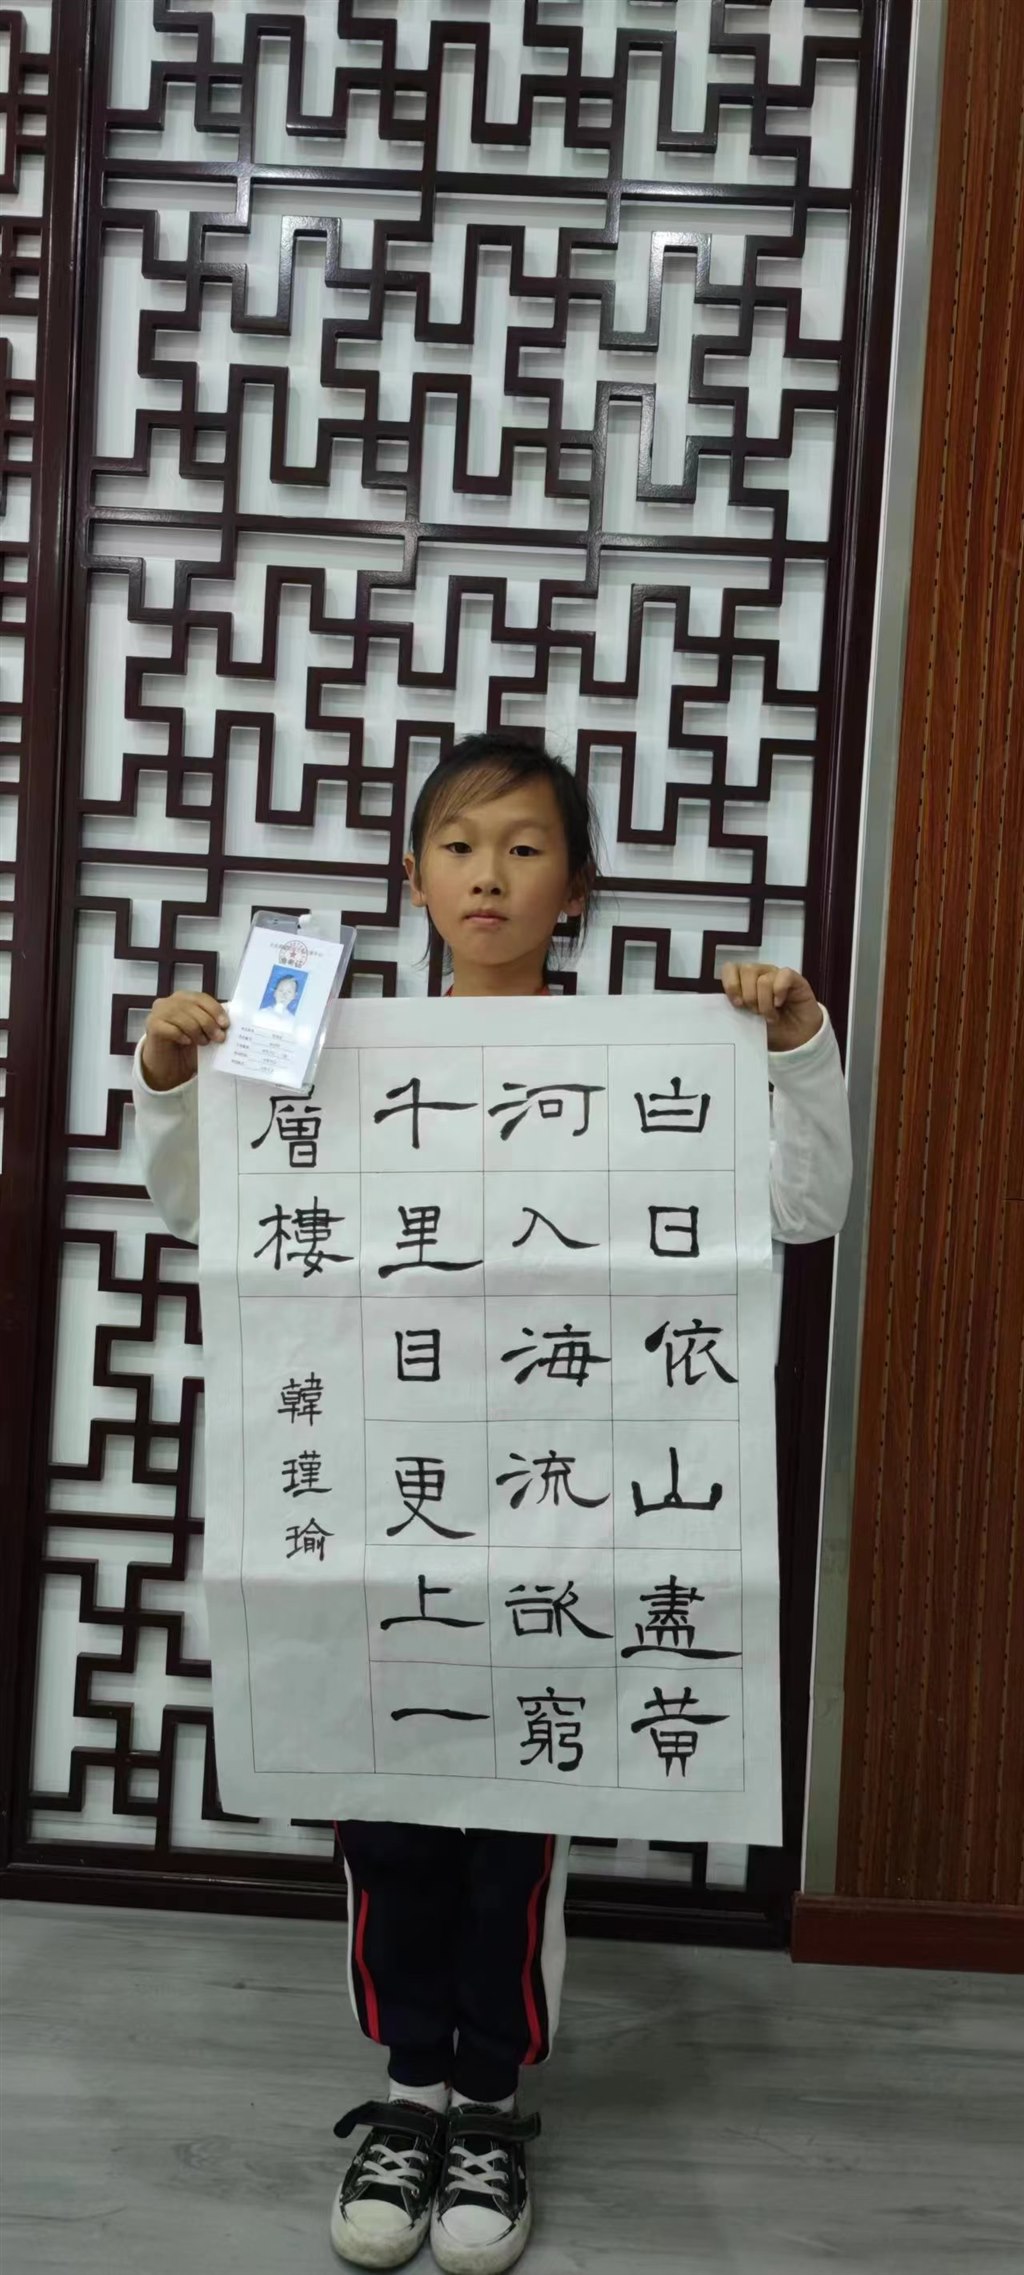 白日依山盡黄
河入海流欲窮
千里目更上一
層樓
韓瑾瑜